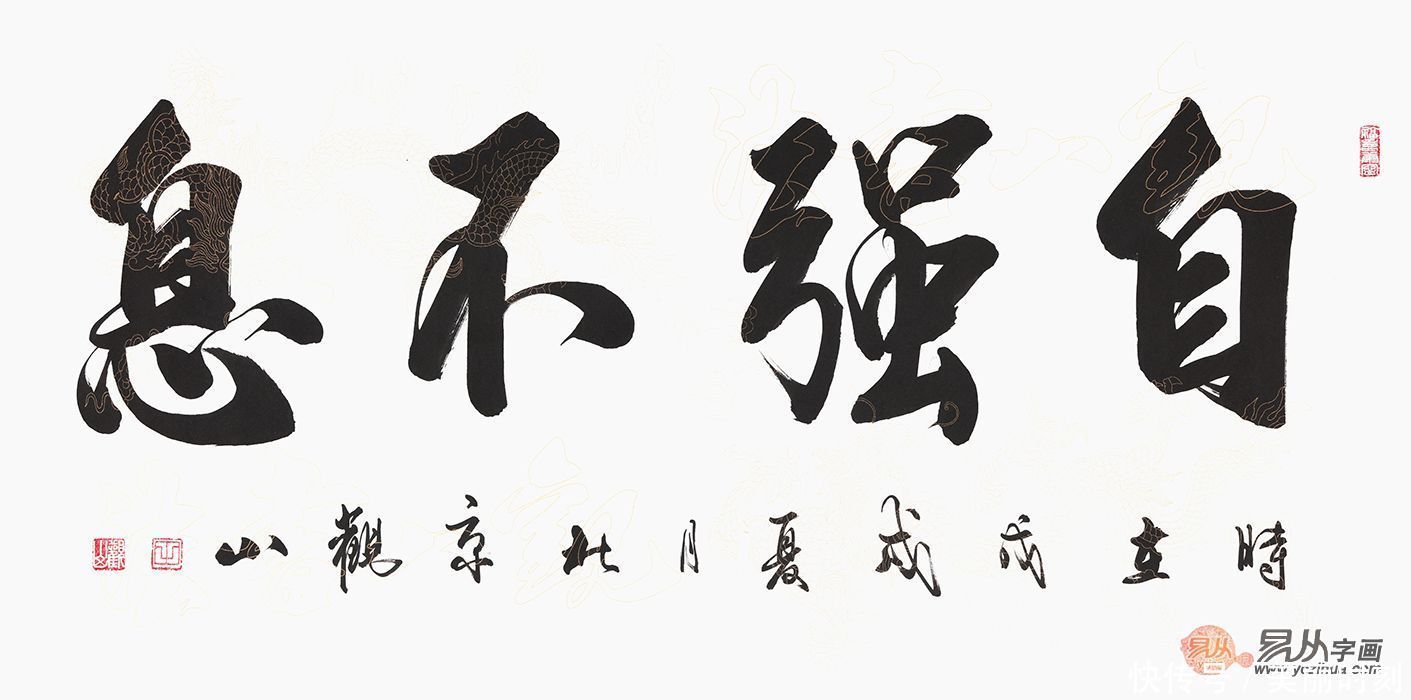 自强不息
時在戊戌夏月北京觀山
易从字画
www.yczihua.com
快传号/美丽时刻